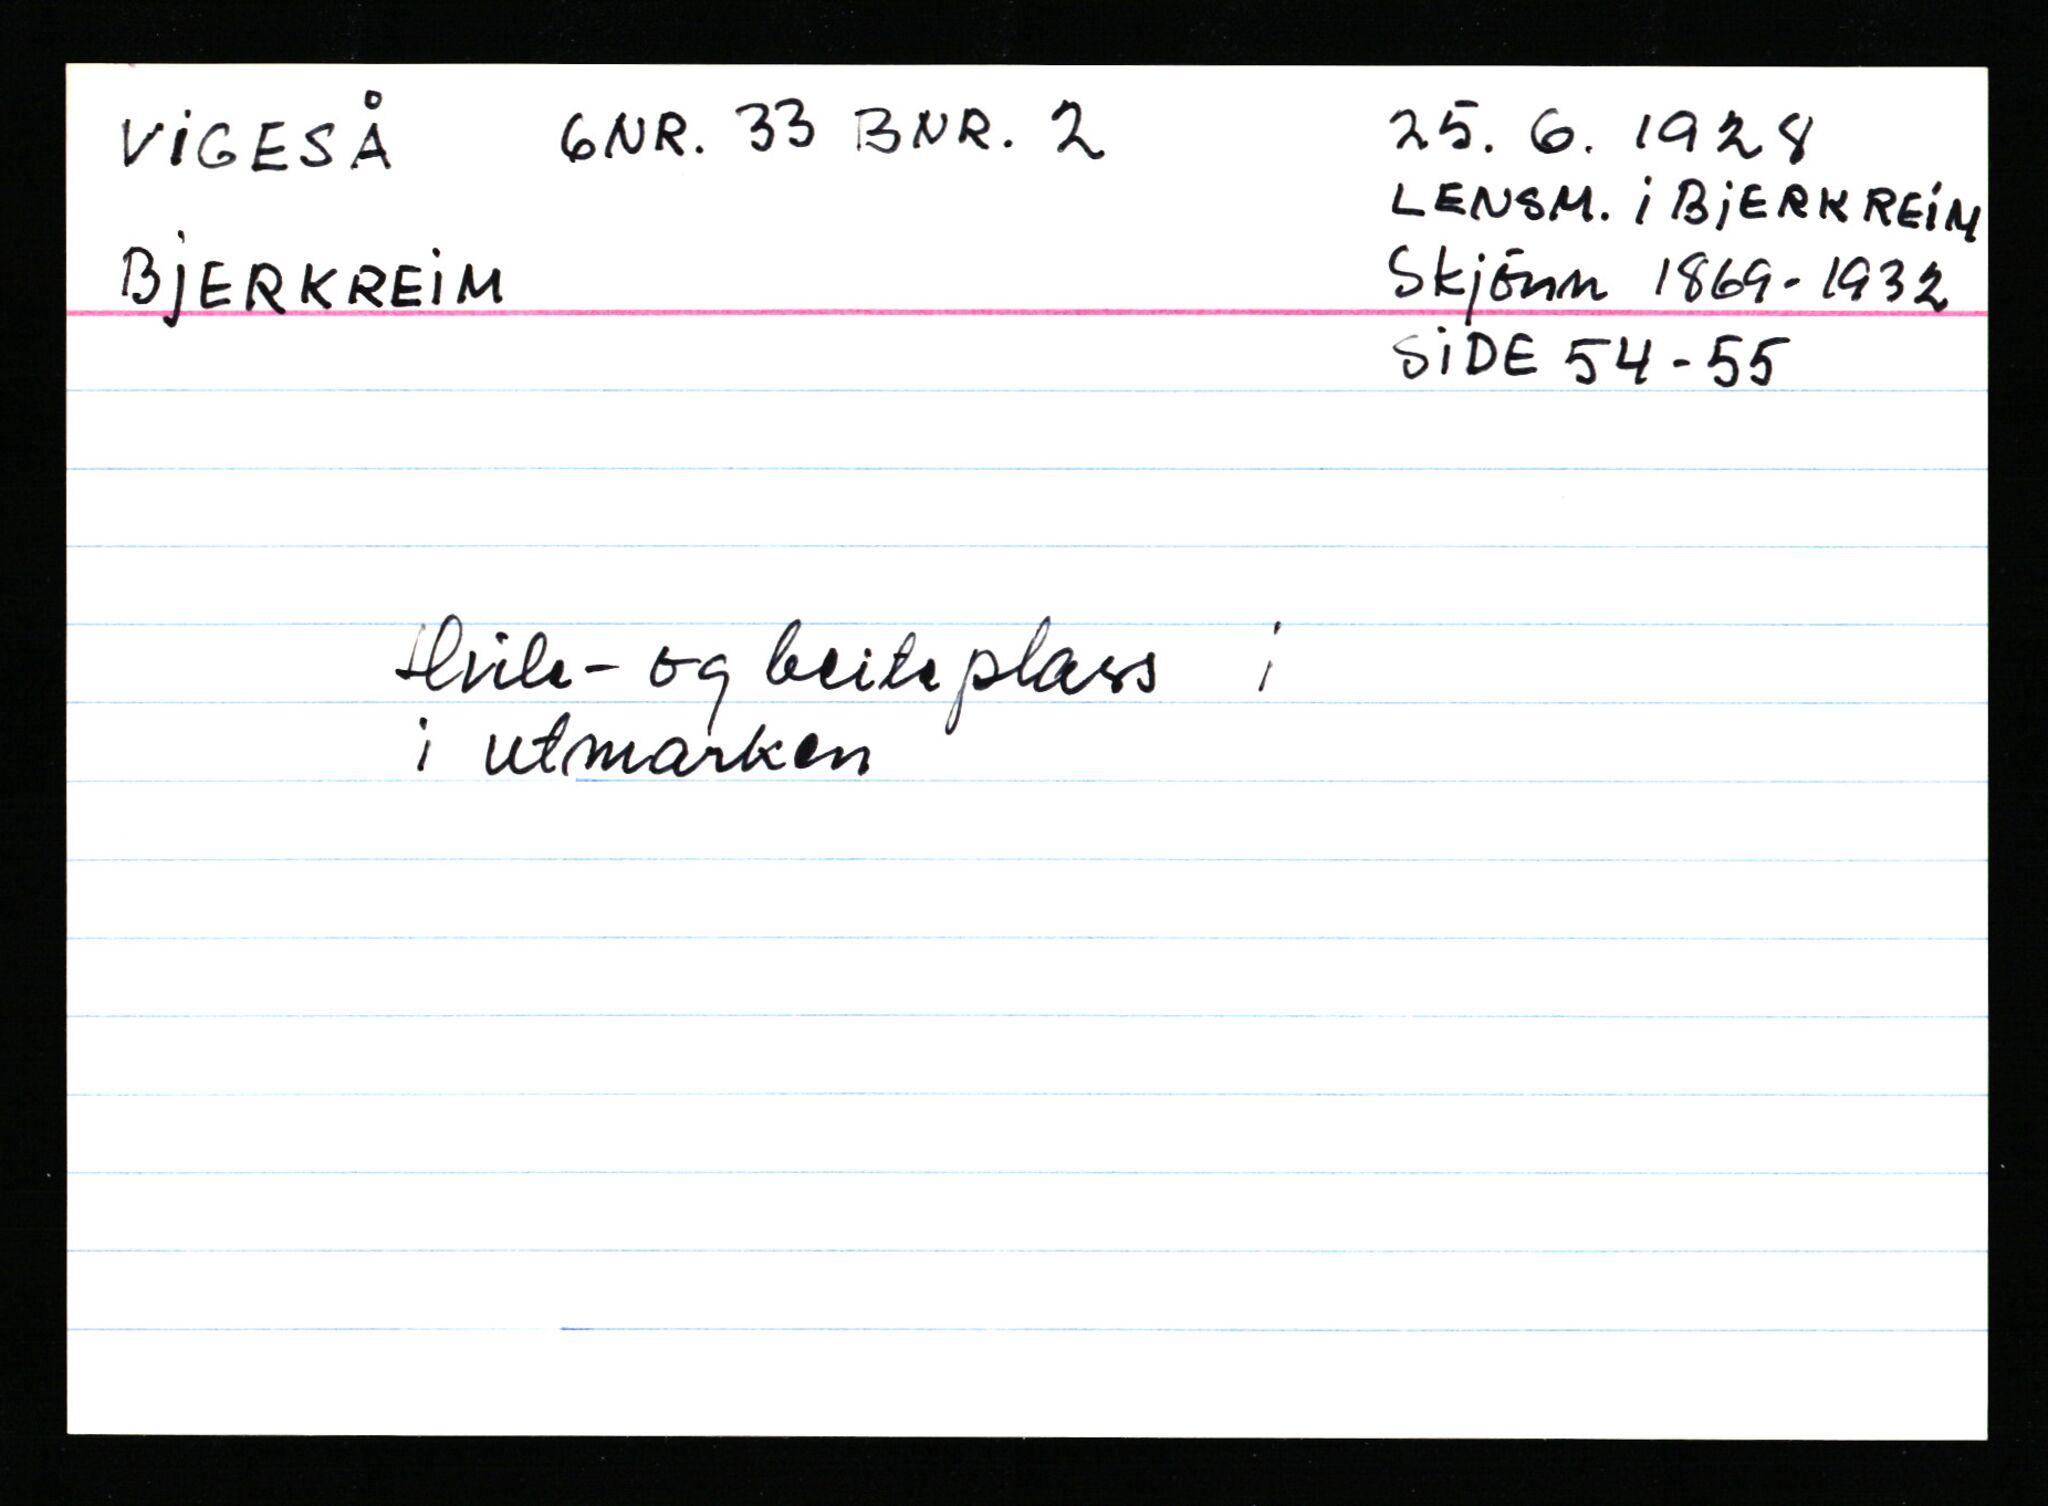 VIGESÅ GNR. 33 BNR. 2 25. 6. 1928
LENSM. i BJERKREIM
BJERKREIM Skjönn 1869-1932
SIDE 54-55
Hvile- og beiteplass i
i utmarken